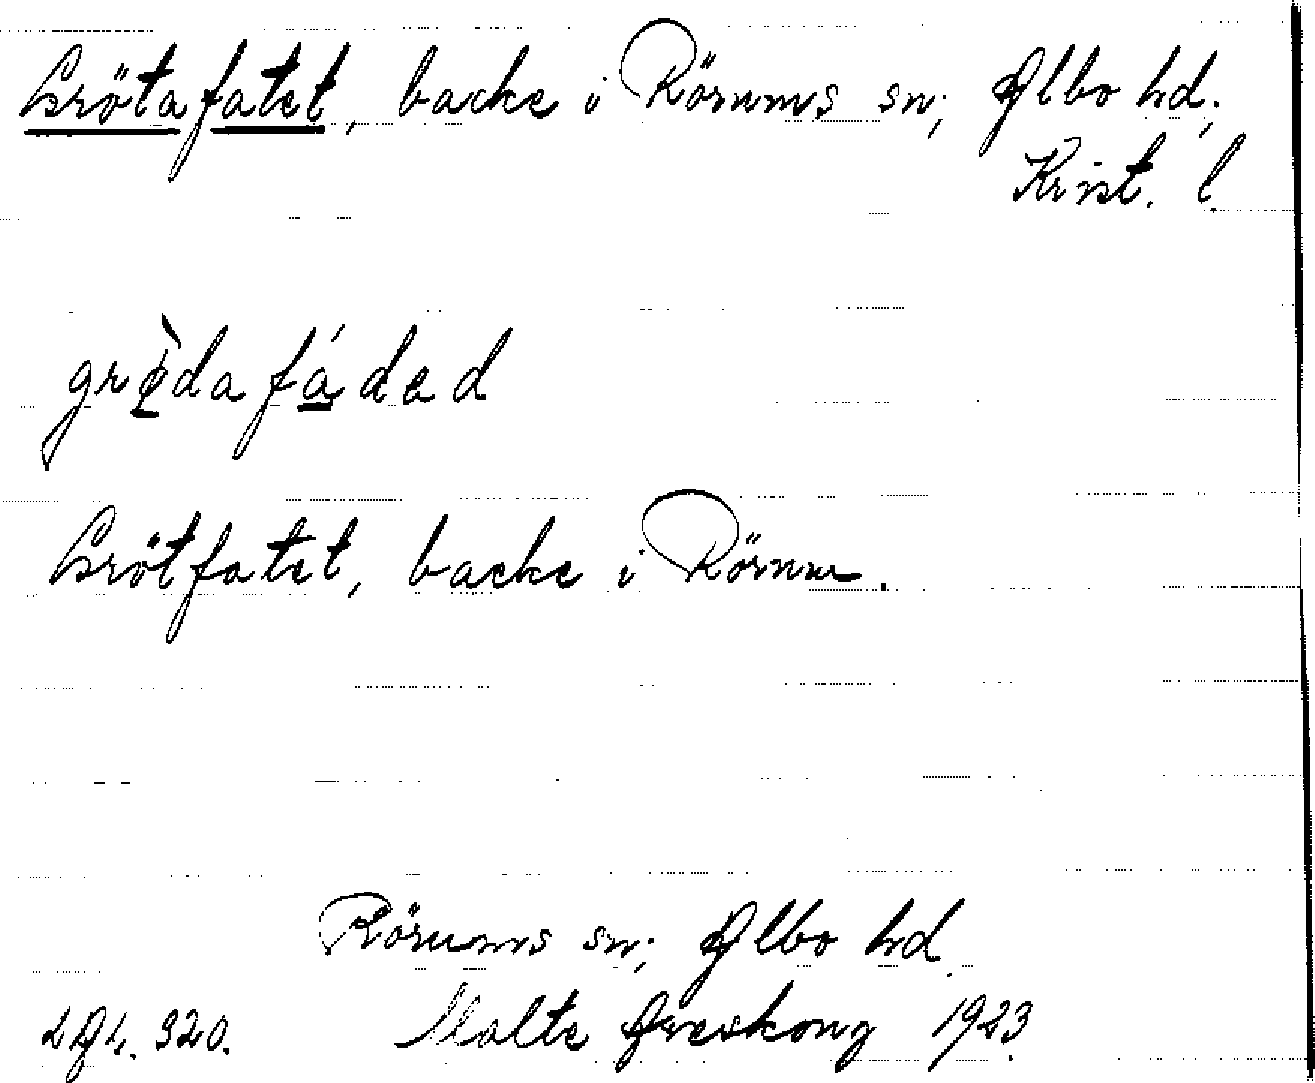 Grötafatet, backe i Rörums sn; Albo hd;
Krist. l.
grø̀dafádad
Grötfatet, backe i Rörum.
Rörums sn; Albo hd.
320. Malte 1923.